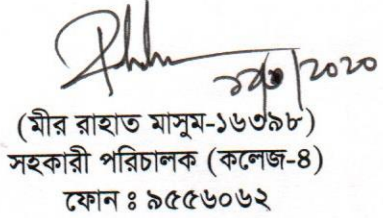 2020
(মীর রাহাত মাসুম-১৬৩৯৮)
সহকারী পরিচালক (কলেজ-৪)
ফোন ঃ ৯৫৫৬০৬২